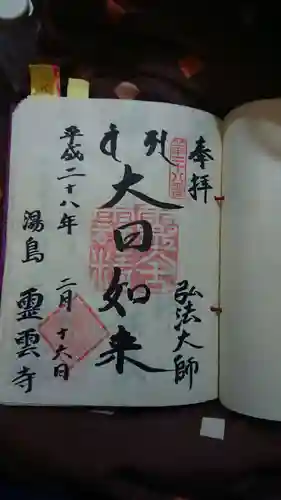 奉拝
弘法大師
大日如来
平成二十八年
二月十六日
湯島 霊雲寺